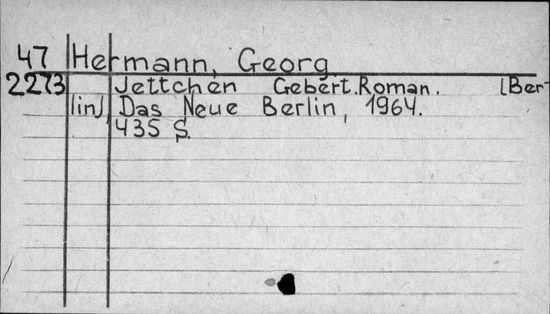 47 Hermann, Georg
2273 Jettchen Gebert. Roman. [Ber-
lin], Das Neue Berlin, 1964.
435 S.